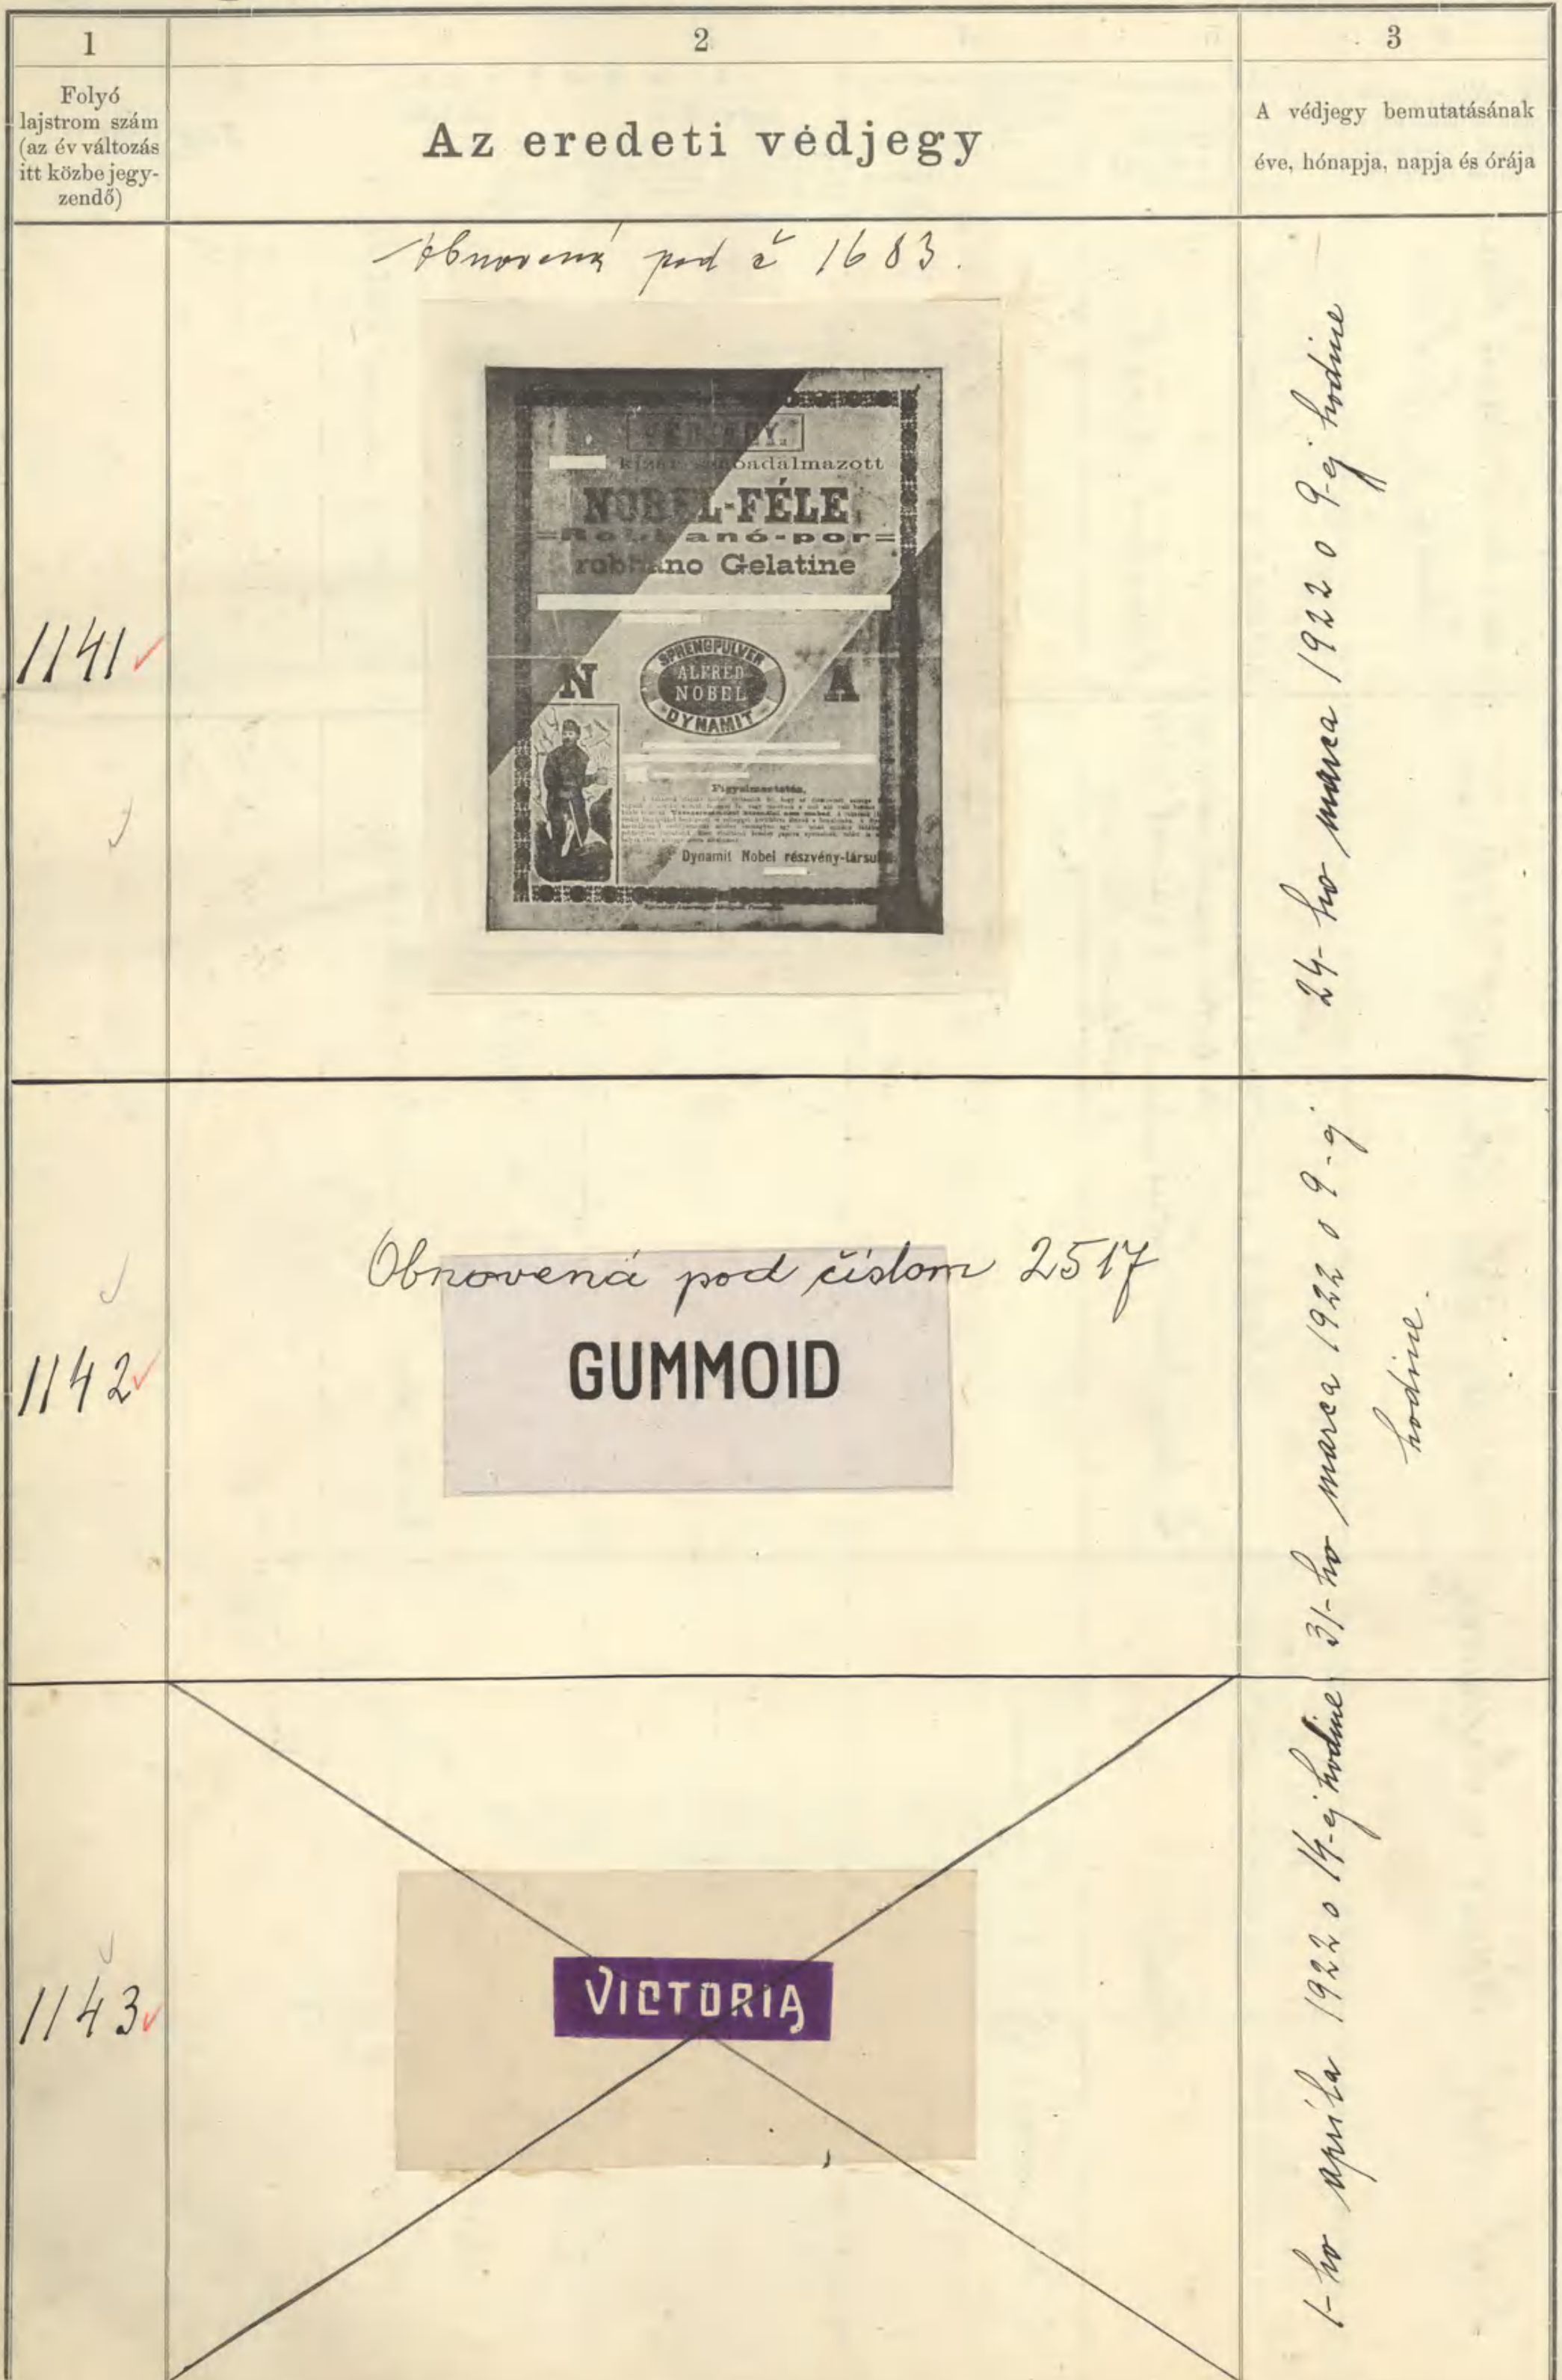 1
2
3
Folyó
lajstrom szám
(az év változás
itt közbe jegy-
zendő)
Az eredeti védjegy
A védjegy bemutatásának
éve, hónapja, napja és órája
1141
Obnovená pod č 1683.
VÉDJEGY.
kizár. szabadalmazott
NOBEL-FÉLE
=Robbanó-por=
robbano Gelatine
N
SPRENGPULVER
ALFRED
NOBEL
DYNAMIT
A
Figyelmeztetés.
Dynamit Nobel részvény-társu
24-ho marca 1922 o 9-ej hodine
1142
Obnovená pod číslom 2517
GUMMOID
31-ho marca 1922 o 9-ej
hodine.
1143
VICTORIA
1-ho apríla 1922 o 14-ej hodine